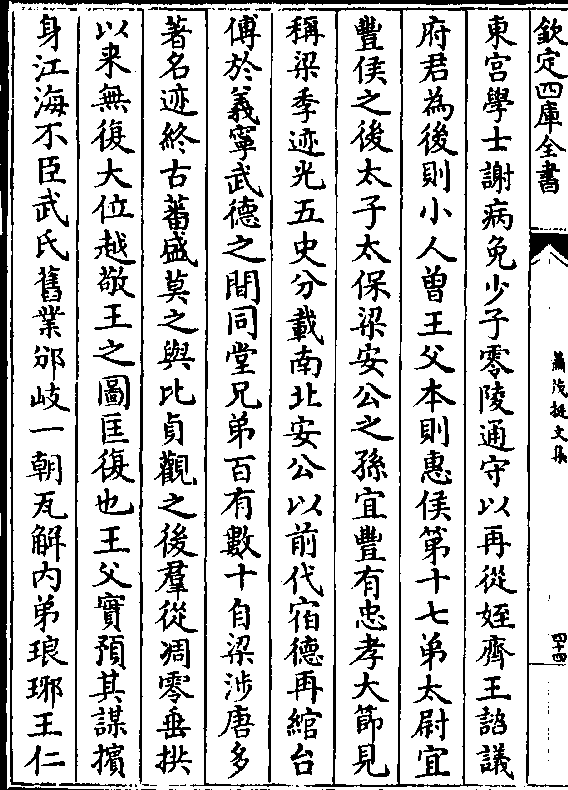 欽定四庫全書
蕭茂挺文集
四十四
東宮學士謝病免少子零陵通守以再從姪齊王諮議
府君為後則小人曾王父本則惠侯第十七弟太尉宜
豐侯之後太子太保梁安公之孫宜豐有忠孝大節見
稱梁季迹光五史分載南北安公以前代宿德再綰台
傅於義寧武德之間同堂兄弟百有數十自梁涉唐多
著名迹終古蕃盛莫之與比貞觀之後羣從凋零垂拱
以来無復大位越敬王之圖匡復也王父實預其謀擯
身江海不臣武氏舊業邠岐一朝瓦解内弟琅琊王仁